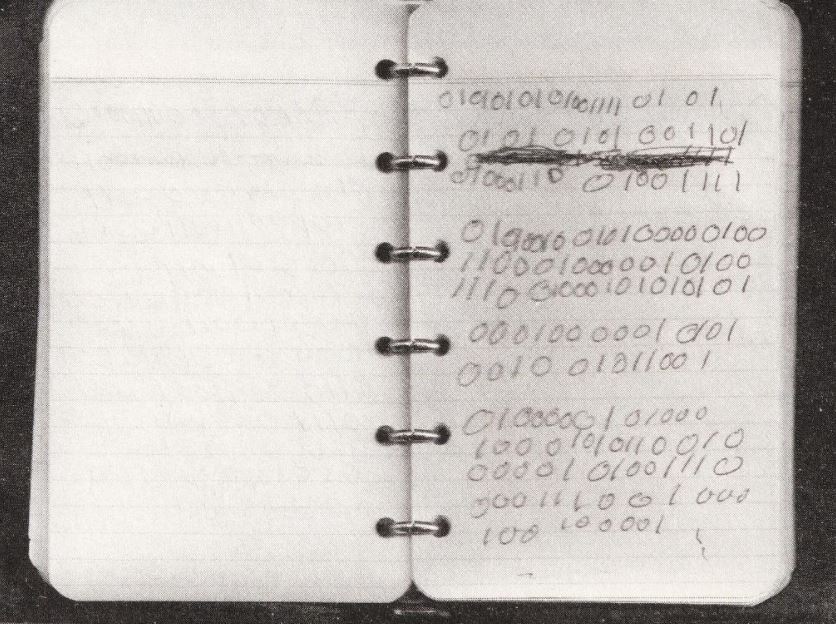 0101010101001111 01 01
0101 0101 001101
01000110 01001111
01000100101000000100
1100010000010100
1110 01000101010101
000100 0001 0101
0010 01011001
01000001 01000
100 0 1010110010
00001 01001110
00011100 1 000
100 100001